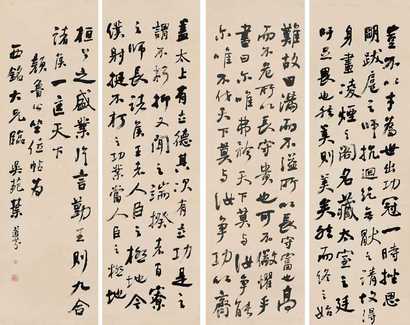 蓋太上有立德其次有立功是之
謂不朽抑又聞之端揆者百寮
之師長諸侯王者人臣之極地今
僕射挺不朽之功業當人臣之極地
豈不以才為世出功冠一時挫思
明跋扈之師抗迴紇無厭之請故得
身畫凌煙之閣名藏太室之廷
吁足畏也然美則美矣然而終之始
難故曰滿而不溢所以長守富也高
而不危所以長守貴也可不儆懼乎
書曰尔唯弗矜天下莫与汝争能
尔唯不伐天下莫与汝争功以齊
桓公之盛業片言勤王則九合
諸侯一匡天下
顏魯公坐位帖為
西銘大兄臨 吳苑葉